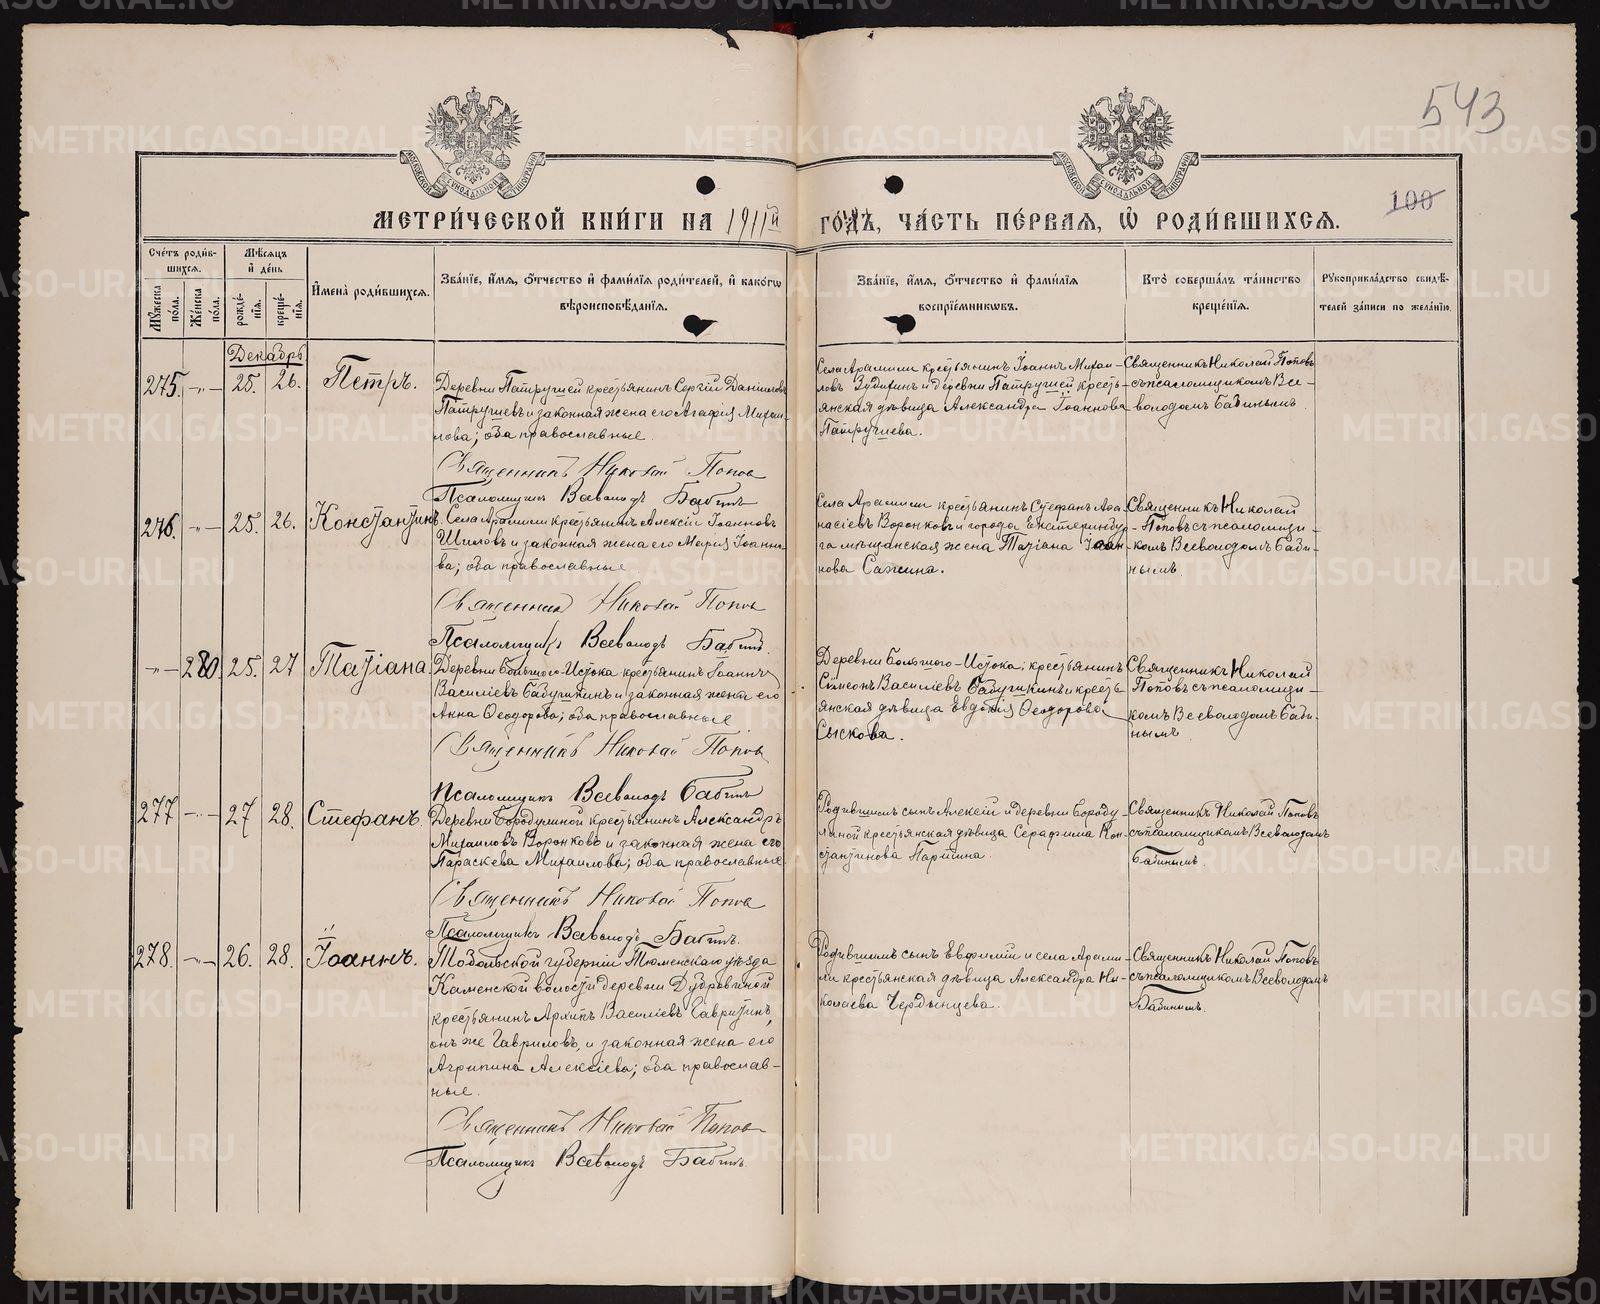 543
100
МОСКОВСКОЙ СУНОДАЛЬНОЙ ТИПОГРАФІИ
МОСКОВСКОЙ СУНОДАЛЬНОЙ ТИПОГРАФІИ
МЕТРИ́ЧЕСКОЙ КНИ́ГИ НА 1911й ГО́ДЪ, ЧА́СТЬ ПЕ́РВАЯ, Ѡ РОДИ́ВШИХСЯ.
Сче́тъ роди́в-
шихся.
Мѣ́сяцъ
и҆ де́нь
Му́жеска
по́ла.
Же́нска
по́ла.
рожде́-
нїя.
креще́-
нїя.
И҆мена̀ роди́вшихся.
Зва́нїе, и҆́мя, ѻ҆́тчество и҆ фами́лїя роди́телей, и҆ како́гѡ
вѣроисповѣ́данїя.
Зва́нїе, и҆́мя, ѻ҆́тчество и҆ фами́лїя
воспрїе́мникѡвъ.
Кто̀ соверша́лъ та́инство
креще́нїя.
Рꙋкоприкла́дство свидѣ́-
телей за́писи по жела́нїю.
Декабрь
275. -"- 25. 26. Петръ.
Деревни Патрушей крестьянинъ Сергій Даніиловъ
Патрушевъ и законная жена его Агафія Михаи-
лова; оба православные.
Священникъ Николай Попов
Псаломщикъ Всеволодъ Бабинъ
Села Арамили крестьянинъ Іоаннъ Михаи-
ловъ Зудихинъ и деревни Патрушей кресть-
янская дѣвица Александра Іоаннова
Патрушева.
Священникъ Николай Поповъ
съ псаломщикомъ Все-
володомъ Бабинымъ.
276. -"- 25. 26. Константинъ.
Села Арамили крестьянинъ Алексій Іоанновъ
Шиловъ и законная жена его Марія Іоанно-
ва; оба православные.
Священник Николай Попов
Псаломщикъ Всеволодъ Бабинъ.
Села Арамили крестьянинъ Стефанъ Аѳа-
насіевъ Воронковъ и города Екатеринбур-
га мѣщанская жена Татіана Іоан-
нова Сажина.
Священникъ Николай
Поповъ съ псаломщи-
комъ Всеволодомъ Баби-
нымъ.
-"- 280. 25. 27 Татіана.
Деревни Большого-Истока крестьянинъ Іоаннъ
Василіевъ Бабушкинъ и законная жена его
Анна Ѳеодорова; оба православные
Священникъ Николай Попов
Псаломщикъ Всеволодъ Бабинъ
Деревни Большого-Истока; крестьянинъ
Симеонъ Василіевъ Бабушкинъ и кресть-
янская дѣвица Евдокія Ѳеодорова
Сыскова.
Священникъ Николай
Поповъ съ псаломщи-
комъ Всеволодомъ Баби-
нымъ
277 -"- 27 28. Стефанъ.
Деревни Бородулиной крестьянинъ Александръ
Михаиловъ Воронковъ и законная жена его
Параскева Михаилова; оба православные
Священникъ Николай Попов
Псаломщикъ Всеволодъ Бабинъ.
Родившимъ сынъ Алексій и деревни Бороду-
линой крестьянская дѣвица Серафима Кон-
стантинова Паршина.
Священникъ Николай Поповъ
съ псаломщикомъ Всеволодомъ
Бабинымъ.
278. -"- 26. 28. Іоаннъ.
Тобольской губерніи Тюменскаго уѣзда
Каменской волости деревни Дубровиной
крестьянинъ Архипъ Василіевъ Гаврилинъ,
онъ же Гавриловъ, и законная жена его
Агрипина Алексіева; оба православ-
ные.
Священникъ Николай Попов
Псаломщикъ Всеволодъ Бабинъ
Родившимъ сынъ Евфимій и села Арами-
ли крестьянская дѣвица Александра Ни-
колаева Чердынцева.
Священникъ Николай Поповъ
съ псаломщикомъ Всеволодомъ
Бабинымъ.
METRIKI.GASO-URAL.RU